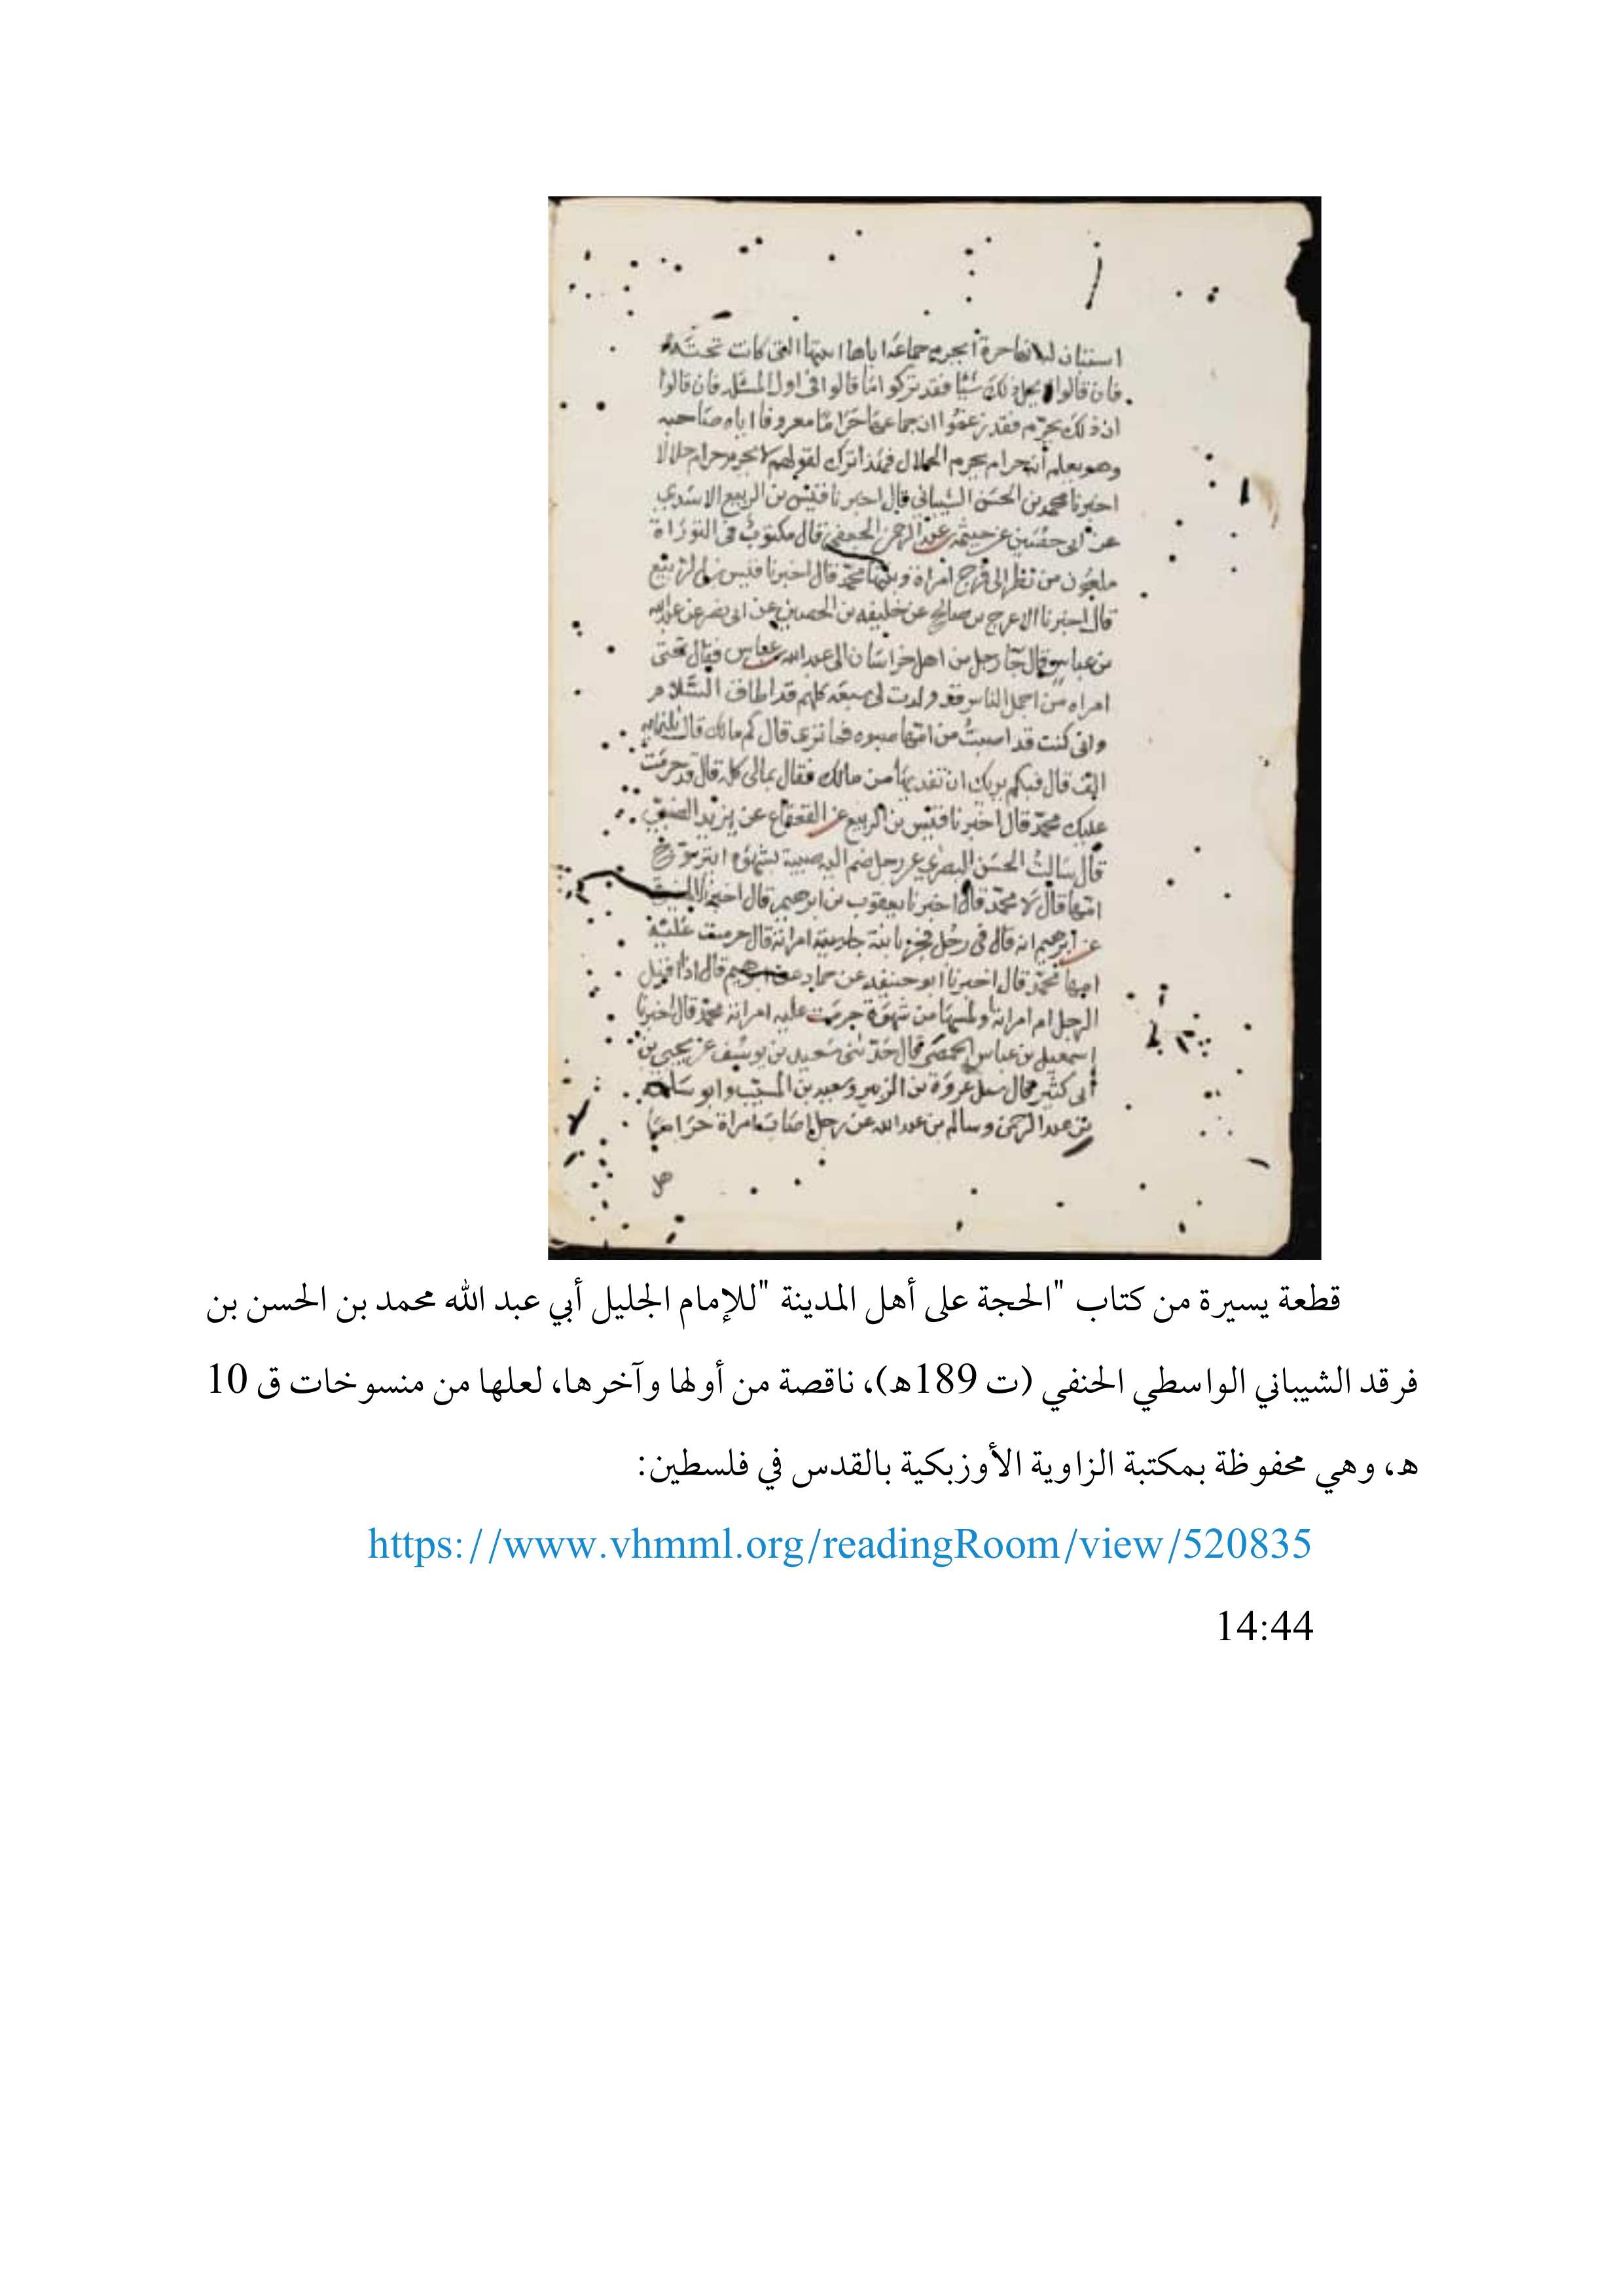 فان قالوا لا يحل ذلك شيئا فقد تركوا ما قالوا في اول المسئله فان قالوا
ان ذلك يحرم فقد زعموا ان جماعها حراما معروفا اباه صاحبه
وهو يعلم أنه حرام يحرم الحلال فهذا ترك لقولهم لا يحرم حرام حلالا
اخبرنا محمد بن الحسن الشيباني قال اخبرنا قيس بن الربيع الاسدي
عن ابي حصين عن خيثمه عبد الرحمن الجعفي قال مكتوب في التوراة
ملعون من نظر الى فرج امراة وبنتها محمد قال اخبرنا قيس بن الربيع
قال اخبرنا الاعرج بن صالح عن خليفه بن الحصين عن ابي نصر عن عبد الله
بن عباس قال جا رجل من اهل خراسان الى عبد الله بن عباس فقال تحتى
امراه من اجمل الناس ولدت لى سبعه كلهم قد اطاق السلاح
وانى كنت قد اصبت من امها صبوه فما ترى قال كم مالك قال
الف قال فبكم يريك ان تفديها من مالك فقال بمالى كله قال قد حرمت
عليك محمد قال اخبرنا قيس بن الربيع عن القعقاع عن يزيد الضبي
قال سالت الحسن البصري عن رجل ضم اليه صبية بشهوه ايتزوج
امها قال لا محمد قال اخبرنا يعقوب بن ابرهيم قال اخبرنا المغيرة
عن ابرهيم انه قال في رجل فجر بابنة جارية امراته قال حرمت عليه
امها محمد قال اخبرنا ابو حنيفه عن حماد عن ابرهيم قال اذا قبل
الرجل ام امراته او لمسها من شهوة حرمت عليه امراته محمد قال اخبرنا
اسمعيل بن عياش الحمصي قال حدثنى سعيد بن يوسف عن يحيى بن
أبى كثير قال سئل عروة بن الزبير وسعيد بن المسيب وابو سلمه
بن عبد الرحمن وسالم بن عبد الله عن رجل اصاب امراة حراما
قطعة يسيرة من كتاب "الحجة على أهل المدينة "للإمام الجليل أبي عبد الله محمد بن الحسن بن
فرقد الشيباني الواسطي الحنفي (ت 189ه)، ناقصة من أولها وآخرها، لعلها من منسوخات ق 10
ه، وهي محفوظة بمكتبة الزاوية الأوزبكية بالقدس في فلسطين:
https://www.vhmml.org/readingRoom/view/520835
14:44